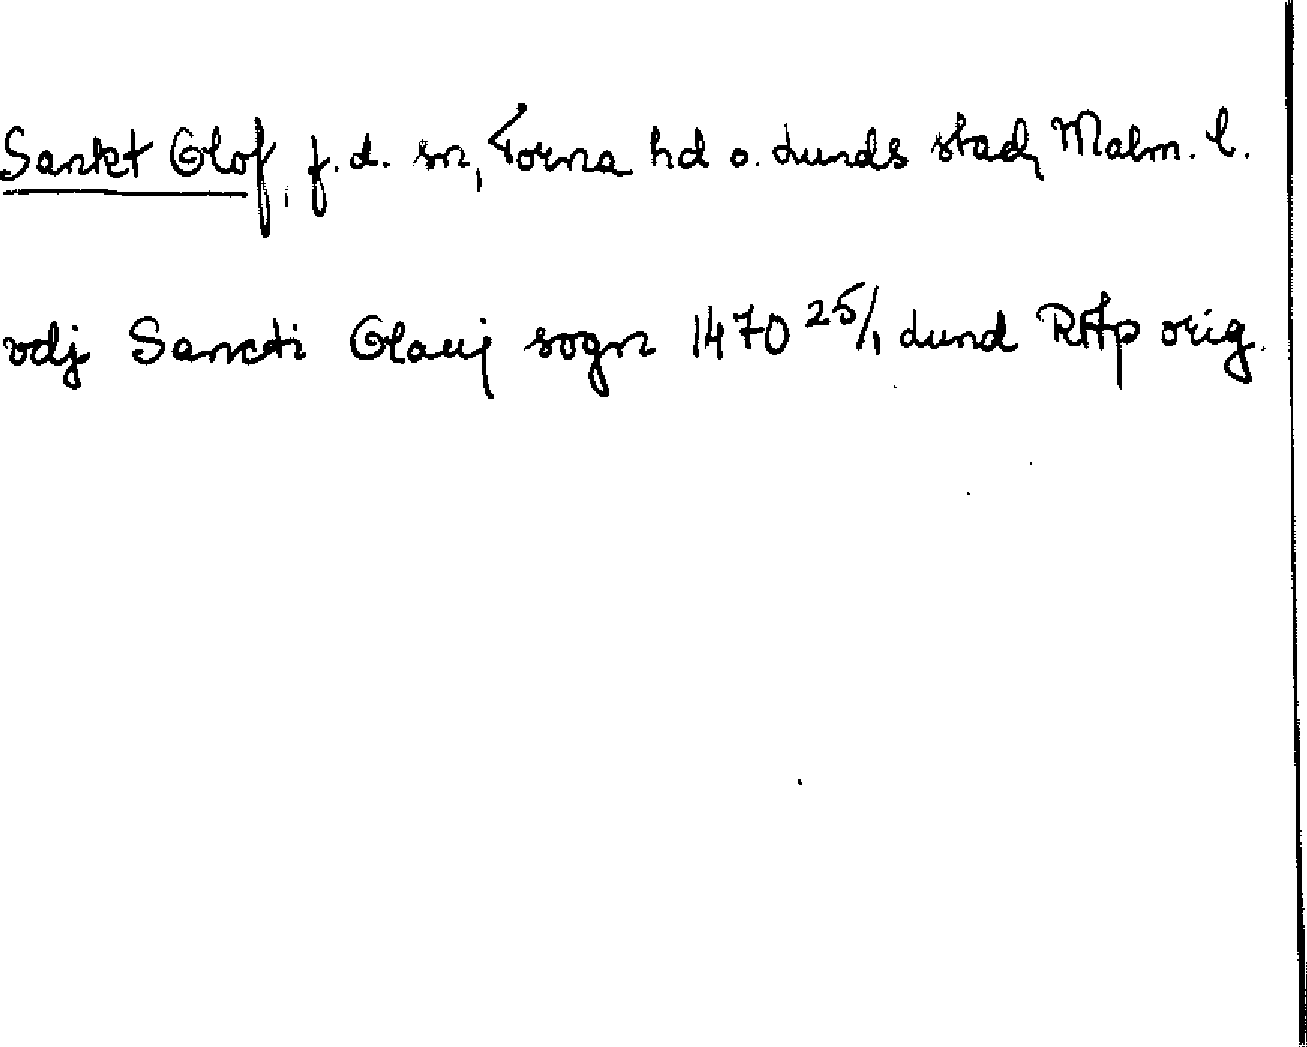 Sankt Olof, f.d. sn, Torna hd o. Lunds stad, Malm. l.
vdj Sancti Olauj sogn 1470 25/1 Lund RAp orig.